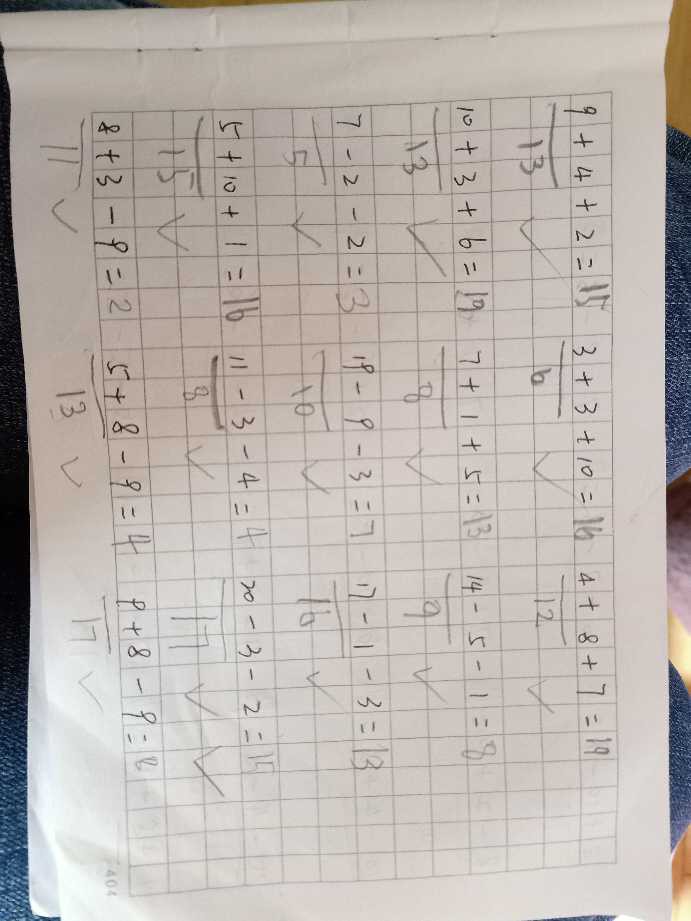 9 + 4 + 2 = 15 3 + 3 + 10 = 16 4 + 8 + 7 = 19
13 ✓ 6 ✓ 12 ✓
10 + 3 + 6 = 19 7 + 1 + 5 = 13 14 - 5 - 1 = 8
13 ✓ 8 ✓ 9 ✓
7 - 2 - 2 = 3 19 - 9 - 3 = 7 17 - 1 - 3 = 13
5 ✓ 10 ✓ 16 ✓
5 + 10 + 1 = 16 11 - 3 - 4 = 4 20 - 3 - 2 = 15
15 ✓ 8 ✓ 17 ✓ ✓
8 + 3 - 9 = 2 5 + 8 - 9 = 4 9 + 8 - 9 = 8
11 ✓ 13 ✓ 17 ✓